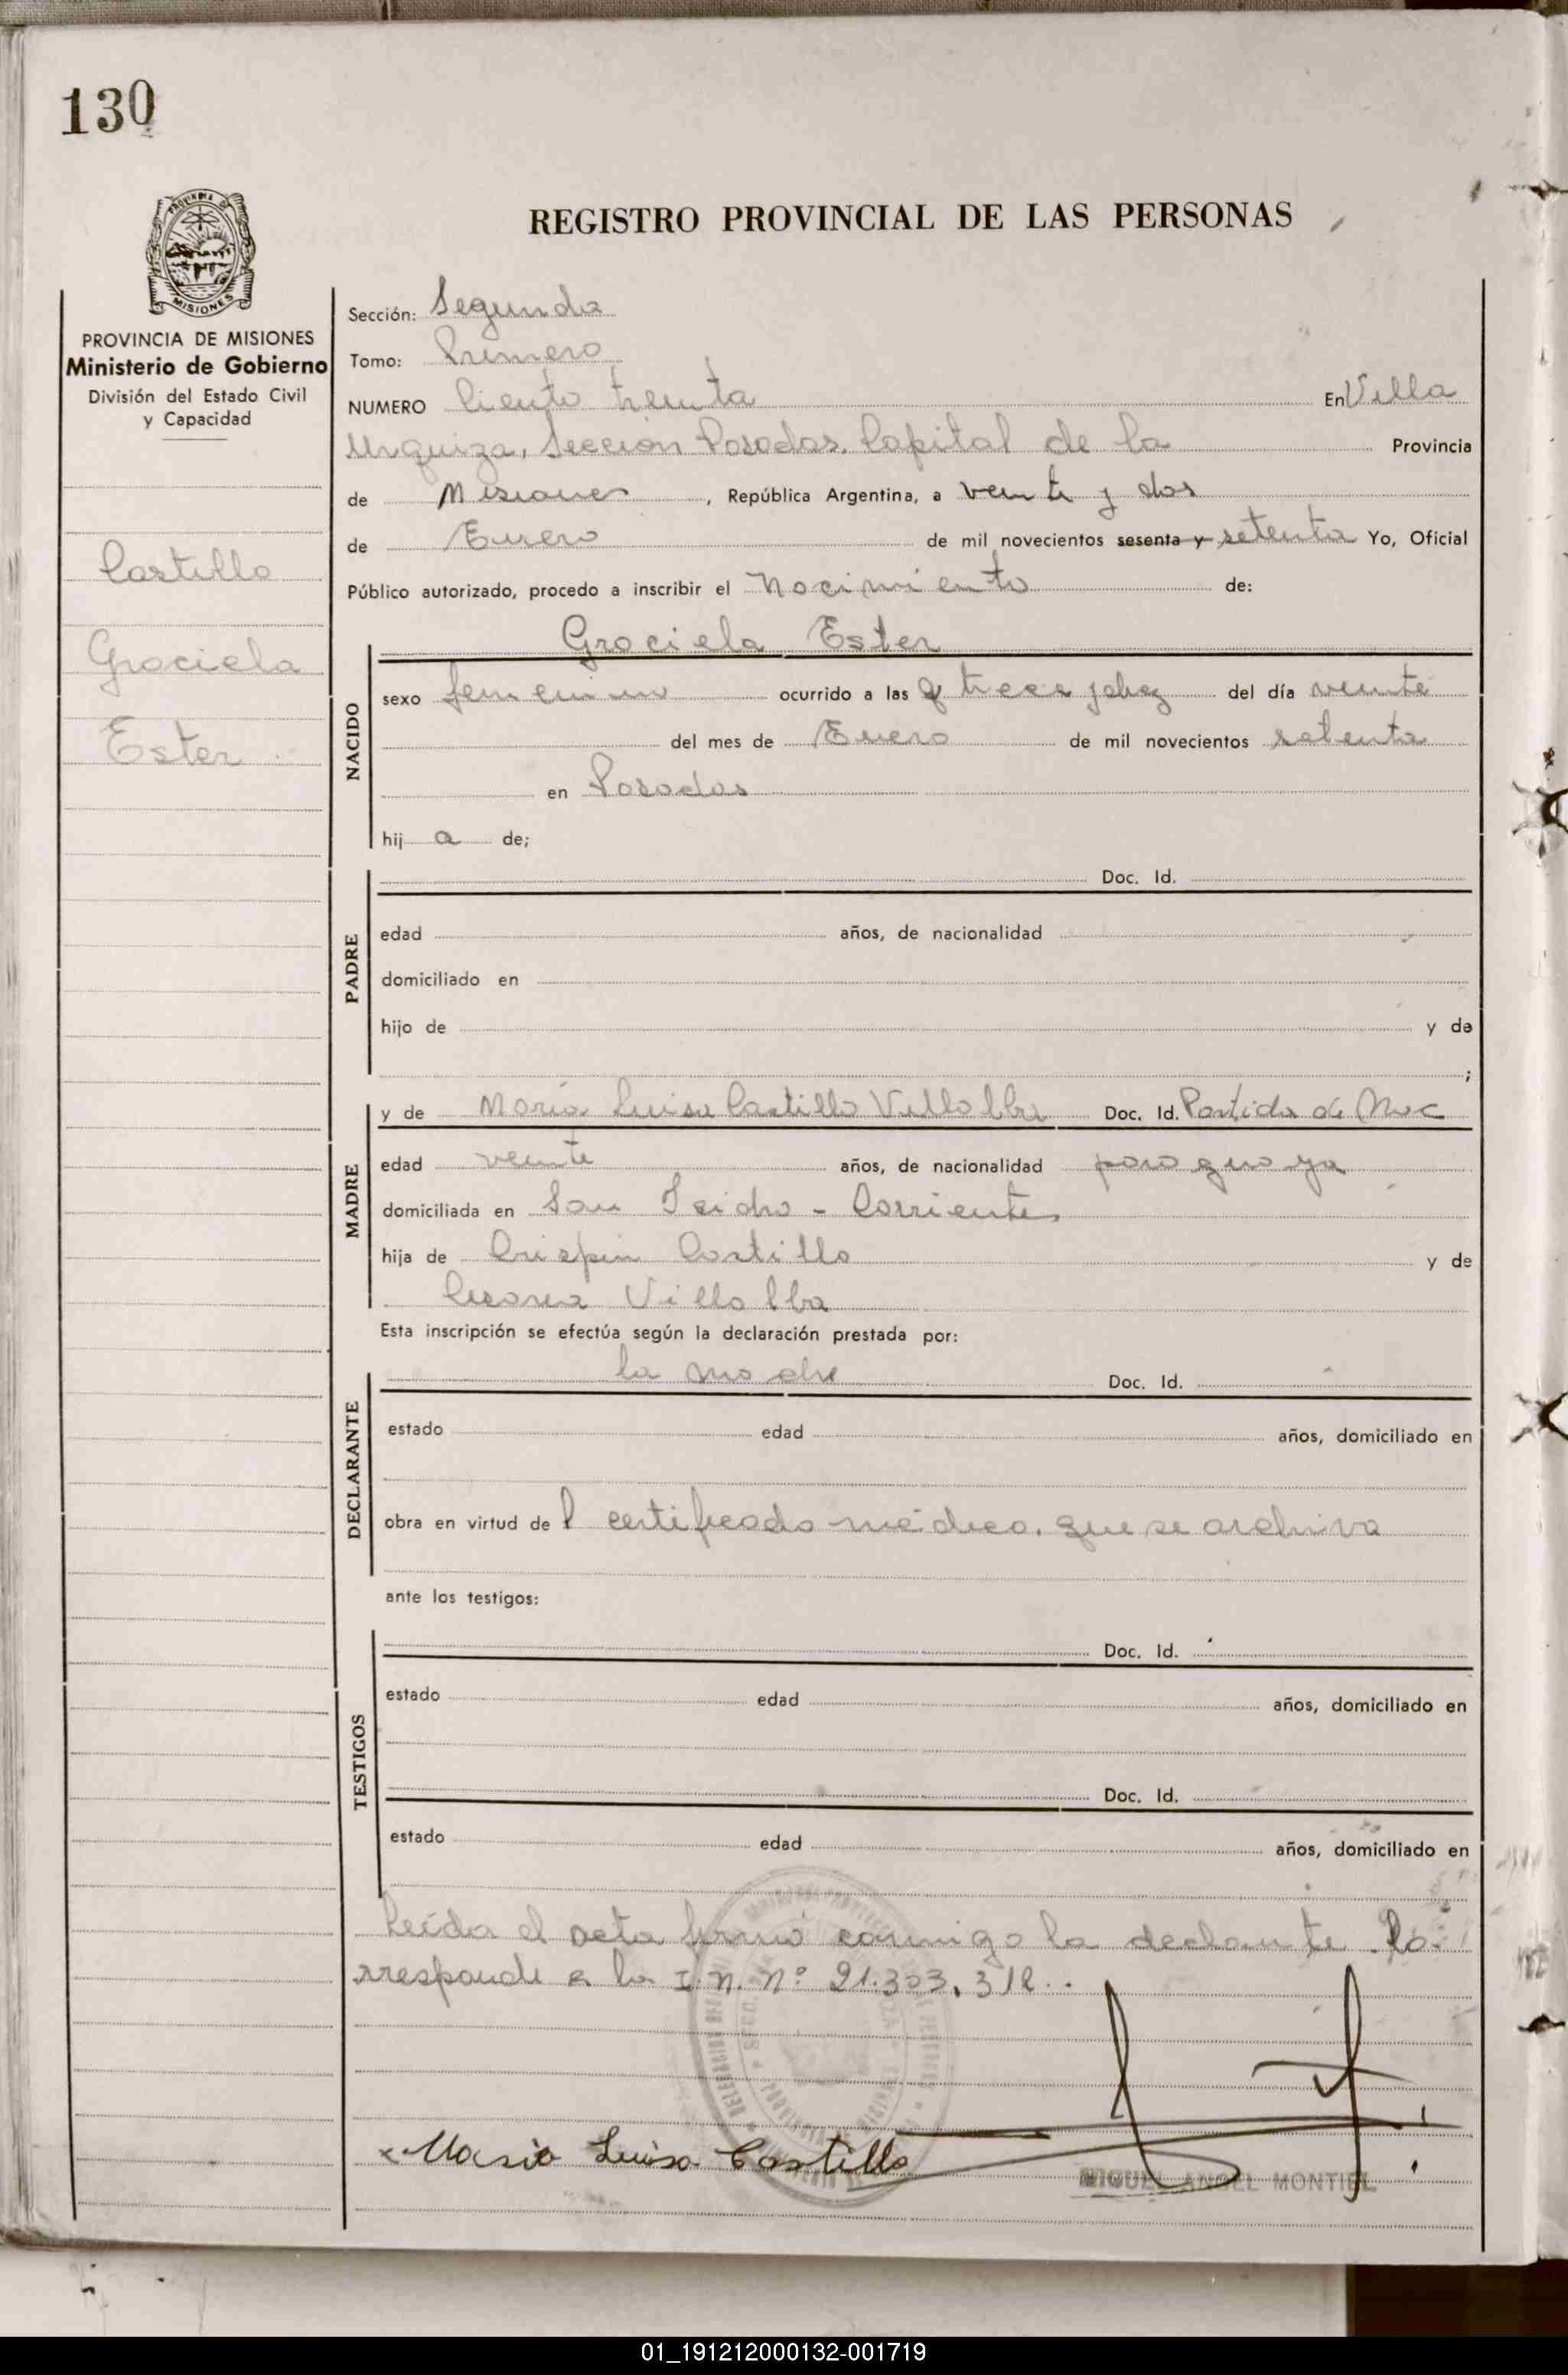 130
PROVINCIA DE
MISIONES
PROVINCIA DE MISIONES
Ministerio de Gobierno
División del Estado Civil
y Capacidad
Castillo
Graciela
Ester
REGISTRO PROVINCIAL DE LAS PERSONAS
Sección: Segunda
Tomo: Primero
NUMERO Ciento treinta En Villa
Urquiza, Sección Posadas, Capital de la Provincia
de Misiones, República Argentina, a veinte y dos
de Enero de mil novecientos sesenta y setenta Yo, Oficial
Público autorizado, procedo a inscribir el Nacimiento de:
Graciela Ester
NACIDO
sexo femenino ocurrido a las trece y diez del día veinte
del mes de Enero de mil novecientos setenta
en Posadas
hij a de;
PADRE
Doc. Id.
edad años, de nacionalidad
domiciliado en
hijo de y de
;
MADRE
y de María Luisa Castillo Villalba Doc. Id. Partida de Nac
edad veinte años, de nacionalidad paraguaya
domiciliada en San Isidro - Corrientes
hija de Crispin Castillo y de
Villalba
Esta inscripción se efectúa según la declaración prestada por:
DECLARANTE
la madre Doc. Id.
estado edad años, domiciliado en
obra en virtud de l certificado médico, que se archiva
ante los testigos:
TESTIGOS
Doc. Id.
estado edad años, domiciliado en
Doc. Id.
estado edad años, domiciliado en
Leída el acta firmó conmigo la declarante. Co-
rresponde a la I. N. Nº 21.303.312..
Maria Luisa Castillo
MIGUEL ANGEL MONTIEL
01_191212000132-001719